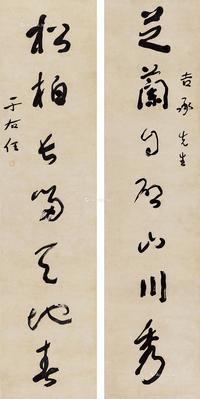 吉承先生
芝蘭自山川秀
松柏長留天地春
于右任